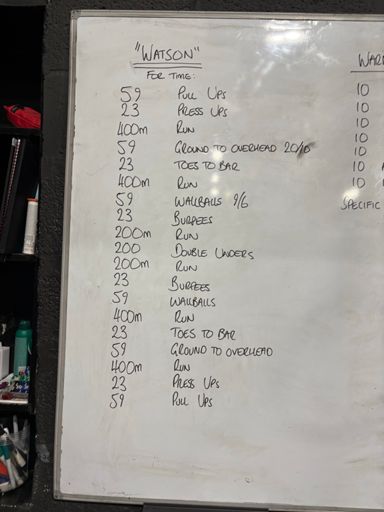 "WATSON"
FOR TIME:
59 PULL UPS
23 PRESS UPS
400m RUN
59 GROUND TO OVERHEAD 20/15
23 TOES TO BAR
400m RUN
59 WALLBALLS 9/6
23 BURPEES
200m RUN
200 DOUBLE UNDERS
200m RUN
23 BURPEES
59 WALLBALLS
400m RUN
23 TOES TO BAR
59 GROUND TO OVERHEAD
400m RUN
23 PRESS UPS
59 PULL UPS
WAR
10
10
10
10
10
10
SPECIFIC